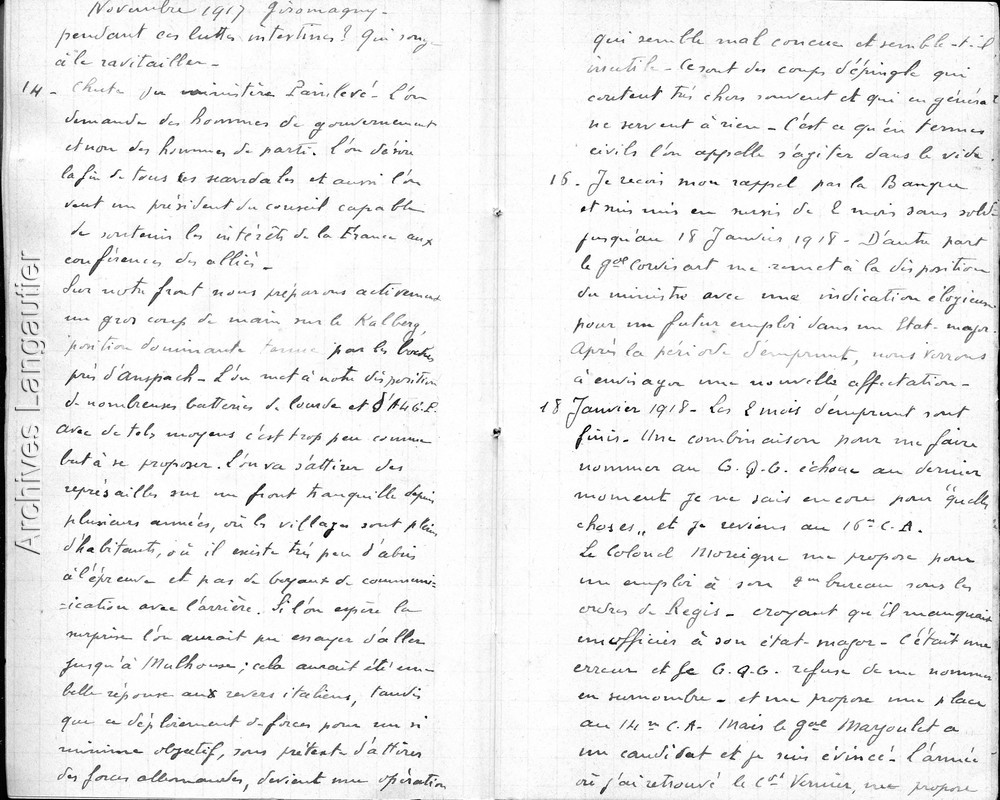 Novembre 1917 Giromagny -
pendant ces luttes intestines? Qui songe
à le ravitailler -
14 - Chute du ministère Painlevé - L'on
demande des hommes de gouvernement
et non des hommes de parti. L'on désire
la fin de tous les scandales et aussi l'on
veut un président du conseil capable
de soutenir les intérêts de la France aux
conférences des alliés -
Sur notre front nous préparons activement
un gros coup de main sur le Kalberg,
position dominante tenue par les boches
près d'Anspach - L'on met à notre disposition
de nombreuses batteries de lourde et d'A
Avec de tels moyens c'est trop peu comme
but à se proposer. L'on va s'attirer des
représailles sur un front tranquille depuis
plusieurs années, où les villages sont pleins
d'habitants, où il existe très peu d'abris
à l'épreuve et pas de boyaux de communi-
-ication avec l'arrière. Si l'on espère la
surprise l'on aurait pu essayer d'aller
jusqu'à Mulhouse; cela aurait été une
belle réponse aux revers italiens, tandis
que ce déploiement de forces pour un si
minime objectif, sous prétexte d'attirer
des forces allemandes, devient une opération
qui semble mal concue et semble-t-il
inutile - Ce sont des coups d'épingle qui
coutent très chers souvent et qui en général
ne servent à rien - C'est ce qu'en termes
civils l'on appelle s'agiter dans le vide.
16. Je recois mon rappel par la Banque
et suis mis en sursis de 2 mois sans solde
jusqu'au 18 Janvier 1918 - D'autre part
le gal Corvisart me remet à la disposition
du ministre avec une indication élogieuse
pour un futur emploi dans un Etat-major
Après la période d'emprunt, nous verrons
à envisager une nouvelle affectation -
18 Janvier 1918 - Les 2 mois d'emprunt sont
finis - Une combinaison pour me faire
nommer au G.Q.G. échoue au dernier
moment je ne sais encore pour "quelles
choses" et je reviens au 16e C.A.
Le Colonel Moreigne me propose pour
un emploi à son 2me bureau sous les
ordres de Regis - croyant qu'il manquait
un officier à son état-major - C'était une
erreur et le G.Q.G. refuse de me nommer
en surnombre - et me propose une place
au 14me C.A. Mais le gal Marjoulet a
un candidat et je suis évincé - L'armée
où j'ai retrouvé le Ct Vernier, me propose
Archives Langautier